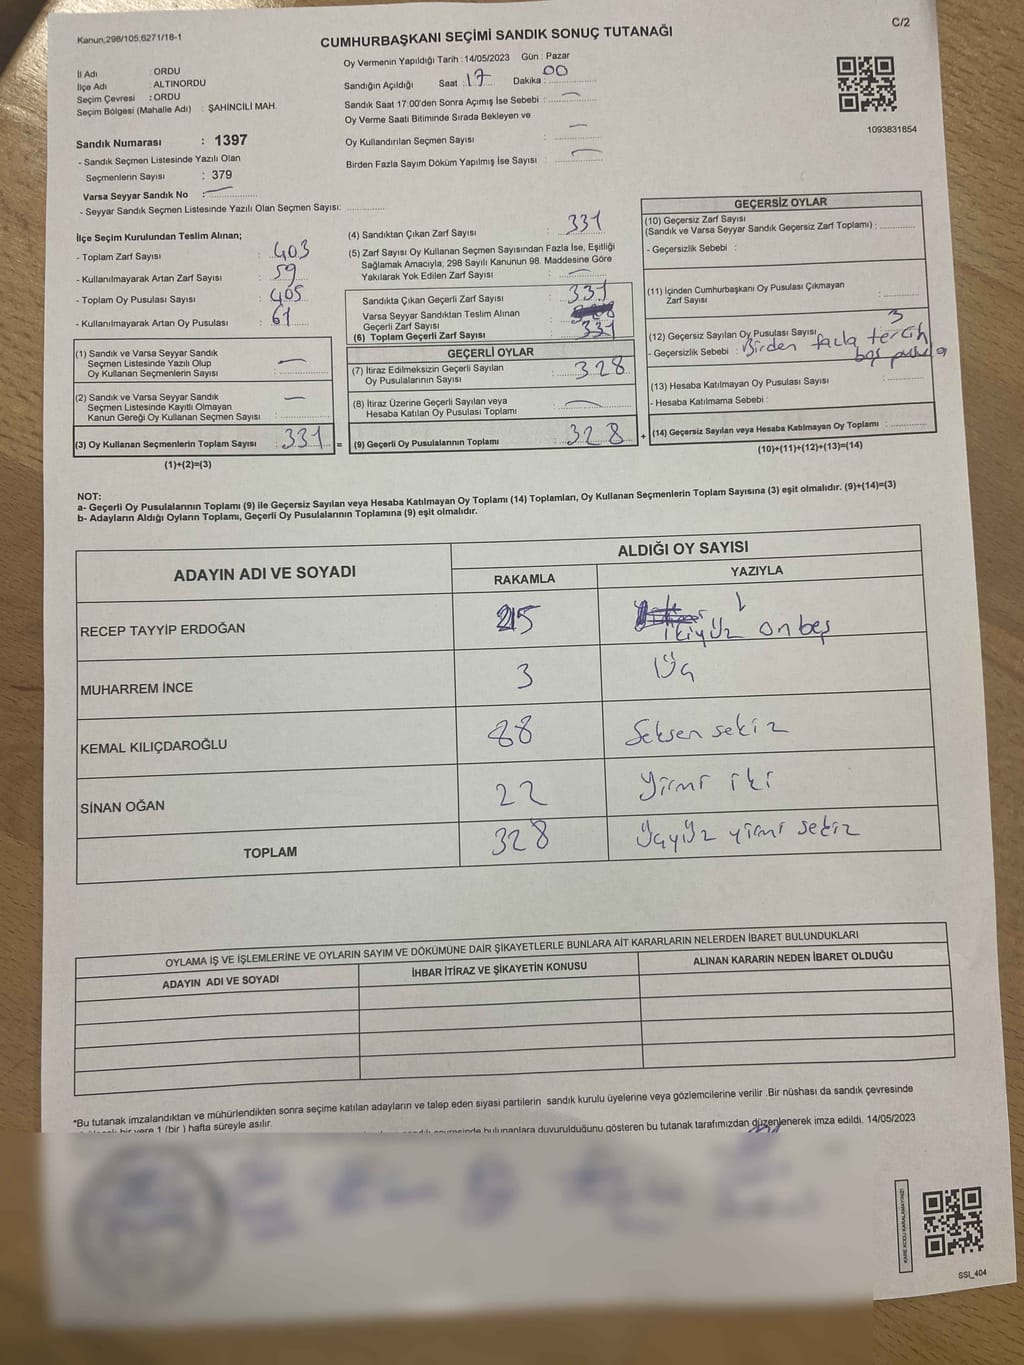 Kanun;298/105;6271/18-1
C/2
CUMHURBAŞKANI SEÇİMİ SANDIK SONUÇ TUTANAĞI
İl Adı : ORDU
İlçe Adı : ALTINORDU
Seçim Çevresi : ORDU
Seçim Bölgesi (Mahalle Adı) : ŞAHİNCİLİ MAH.
Sandık Numarası : 1397
- Sandık Seçmen Listesinde Yazılı Olan
Seçmenlerin Sayısı : 379
Varsa Seyyar Sandık No :
- Seyyar Sandık Seçmen Listesinde Yazılı Olan Seçmen Sayısı:
Oy Vermenin Yapıldığı Tarih : 14/05/2023 Gün : Pazar
Sandığın Açıldığı Saat : 17 Dakika : 00
Sandık Saat 17:00'den Sonra Açımış İse Sebebi : —
Oy Verme Saati Bitiminde Sırada Bekleyen ve
Oy Kullandırılan Seçmen Sayısı : —
Birden Fazla Sayım Döküm Yapılmış İse Sayısı : —
1093831854
İlçe Seçim Kurulundan Teslim Alınan;
- Toplam Zarf Sayısı : 403
- Kullanılmayarak Artan Zarf Sayısı : 59
- Toplam Oy Pusulası Sayısı : 405
- Kullanılmayarak Artan Oy Pusulası : 61
(1) Sandık ve Varsa Seyyar Sandık
Seçmen Listesinde Yazılı Olup
Oy Kullanan Seçmenlerin Sayısı : —
(2) Sandık ve Varsa Seyyar Sandık
Seçmen Listesinde Kayıtlı Olmayan
Kanun Gereği Oy Kullanan Seçmen Sayısı : —
(3) Oy Kullanan Seçmenlerin Toplam Sayısı : 331 =
(1)+(2)=(3)
(4) Sandıktan Çıkan Zarf Sayısı : 331
(5) Zarf Sayısı Oy Kullanan Seçmen Sayısından Fazla İse, Eşitliği
Sağlamak Amacıyla; 298 Sayılı Kanunun 98. Maddesine Göre
Yakılarak Yok Edilen Zarf Sayısı : —
Sandıkta Çıkan Geçerli Zarf Sayısı : 331
Varsa Seyyar Sandıktan Teslim Alınan
Geçerli Zarf Sayısı :
(6) Toplam Geçerli Zarf Sayısı : 331
GEÇERLİ OYLAR
(7) İtiraz Edilmeksizin Geçerli Sayılan
Oy Pusulalarının Sayısı : 328
(8) İtiraz Üzerine Geçerli Sayılan veya
Hesaba Katılan Oy Pusulası Toplamı : —
(9) Geçerli Oy Pusulalarının Toplamı : 328 +
GEÇERSİZ OYLAR
(10) Geçersiz Zarf Sayısı
(Sandık ve Varsa Seyyar Sandık Geçersiz Zarf Toplamı) :
- Geçersizlik Sebebi :
(11) İçinden Cumhurbaşkanı Oy Pusulası Çıkmayan
Zarf Sayısı :
(12) Geçersiz Sayılan Oy Pusulası Sayısı : 3
- Geçersizlik Sebebi : Birden fazla tercih
boş pusula
(13) Hesaba Katılmayan Oy Pusulası Sayısı :
- Hesaba Katılmama Sebebi :
(14) Geçersiz Sayılan veya Hesaba Katılmayan Oy Toplamı :
(10)+(11)+(12)+(13)=(14)
NOT:
a- Geçerli Oy Pusulalarının Toplamı (9) ile Geçersiz Sayılan veya Hesaba Katılmayan Oy Toplamı (14) Toplamları, Oy Kullanan Seçmenlerin Toplam Sayısına (3) eşit olmalıdır. (9)+(14)=(3)
b- Adayların Aldığı Oyların Toplamı, Geçerli Oy Pusulalarının Toplamına (9) eşit olmalıdır.
ADAYIN ADI VE SOYADI
ALDIĞI OY SAYISI
RAKAMLA YAZIYLA
RECEP TAYYİP ERDOĞAN 215 ikiyüz onbeş
MUHARREM İNCE 3 Üç
KEMAL KILIÇDAROĞLU 88 Seksen sekiz
SİNAN OĞAN 22 Yirmi iki
TOPLAM 328 Üçyüz yirmi sekiz
OYLAMA İŞ VE İŞLEMLERİNE VE OYLARIN SAYIM VE DÖKÜMÜNE DAİR ŞİKAYETLERLE BUNLARA AİT KARARLARIN NELERDEN İBARET BULUNDUKLARI
ADAYIN ADI VE SOYADI İHBAR İTİRAZ VE ŞİKAYETİN KONUSU ALINAN KARARIN NEDEN İBARET OLDUĞU
*Bu tutanak imzalandıktan ve mühürlendikten sonra seçime katılan adayların ve talep eden siyasi partilerin sandık kurulu üyelerine veya gözlemcilerine verilir .Bir nüshası da sandık çevresinde
bir yere 1 (bir ) hafta süreyle asılır.
bulunanlara duyurulduğunu gösteren bu tutanak tarafımızdan düzenlenerek imza edildi. 14/05/2023
KARE KODU KARALAMAYINIZ!
SSI_404